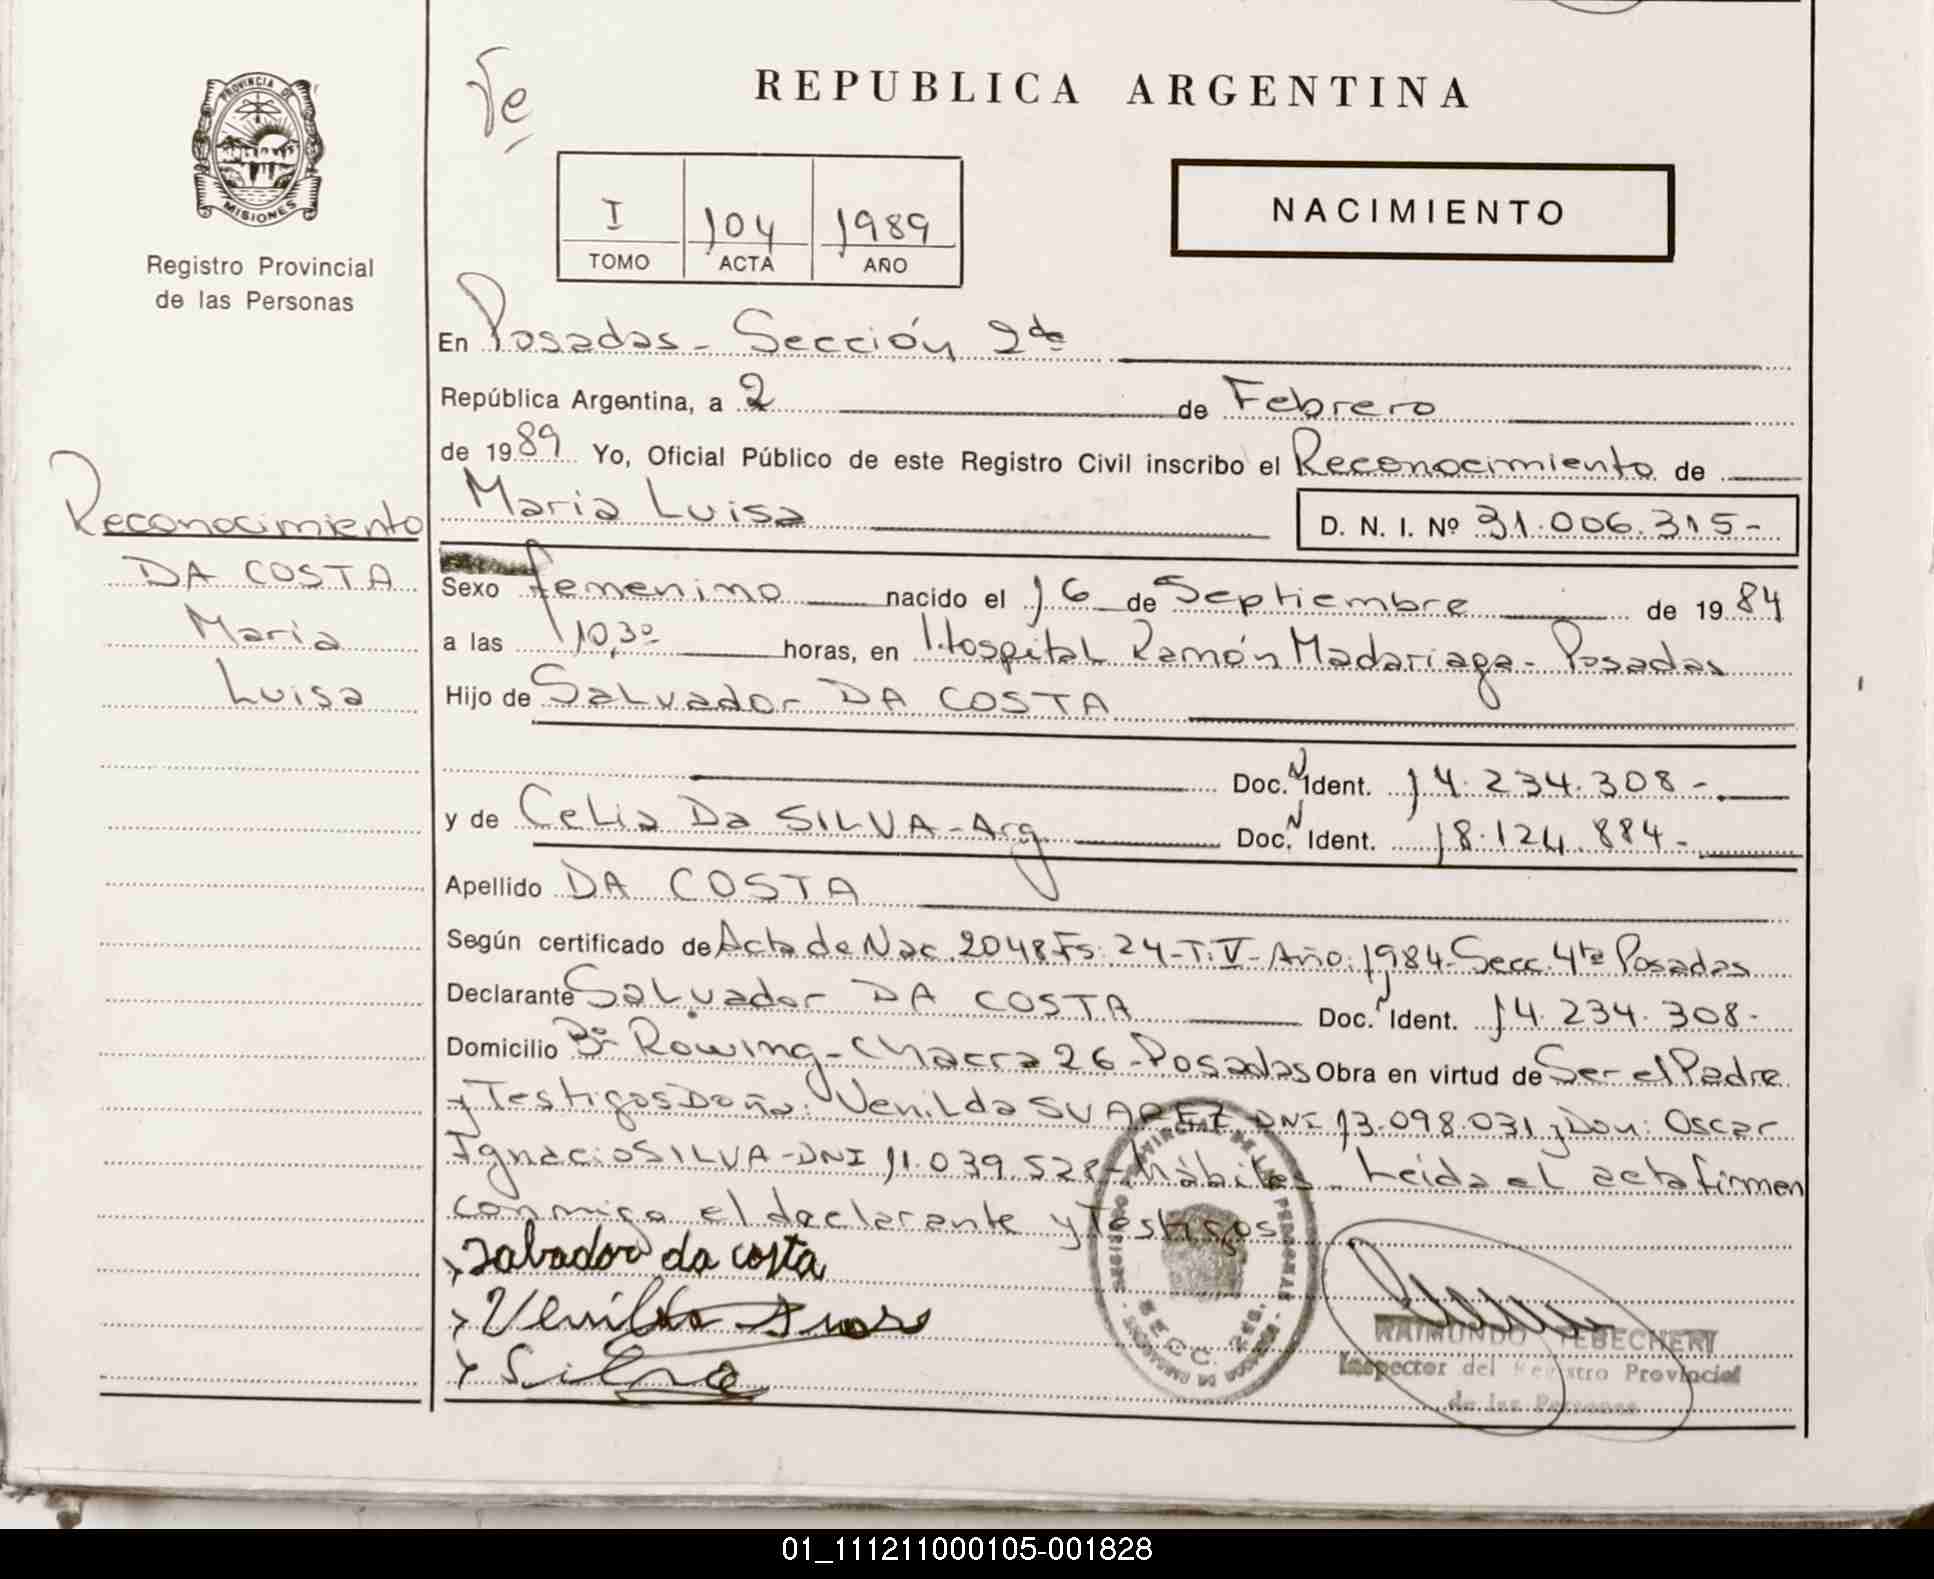 PROVINCIA DE
MISIONES
Registro Provincial
de las Personas
Reconocimiento
DA COSTA
Maria
Luisa
REPUBLICA ARGENTINA
I 104 1989
TOMO ACTA AÑO
NACIMIENTO
En Posadas - Sección 2da
República Argentina, a 2 de Febrero
de 1989 Yo, Oficial Público de este Registro Civil inscribo el Reconocimiento de
Maria Luisa D. N. I. Nº 31.006.315-
Sexo femenino nacido el 16 de Septiembre de 1984
a las 10,30 horas, en Hospital Ramón Madariaga - Posadas
Hijo de Salvador DA COSTA
Doc. N Ident. 14.234.308-.
y de Celia Da SILVA - Arg. Doc. N Ident. 18.124.884-
Apellido DA COSTA
Según certificado de Acta de Nac. 2048 Fs: 24-T: V- Año: 1984-Secc. 4ta Posadas
Declarante Salvador DA COSTA Doc. N Ident. 14.234.308-
Domicilio Bº Rowing - Chacra 26 - Posadas Obra en virtud de Ser el Padre
y Testigos Doña: Venilda SUAREZ DNI 13.098.031 y Don: Oscar
Ignacio SILVA - DNI 11.039.528 - hábiles - Leida el acta firman
conmigo el declarante y Testigos
salbador da costa
Venilda Suares
Silva
REGISTRO PROVINCIAL DE LAS PERSONAS
SECC. 2da.
RAIMUNDO
Inspector del Registro Provincial
de las Personas
01_111211000105-001828